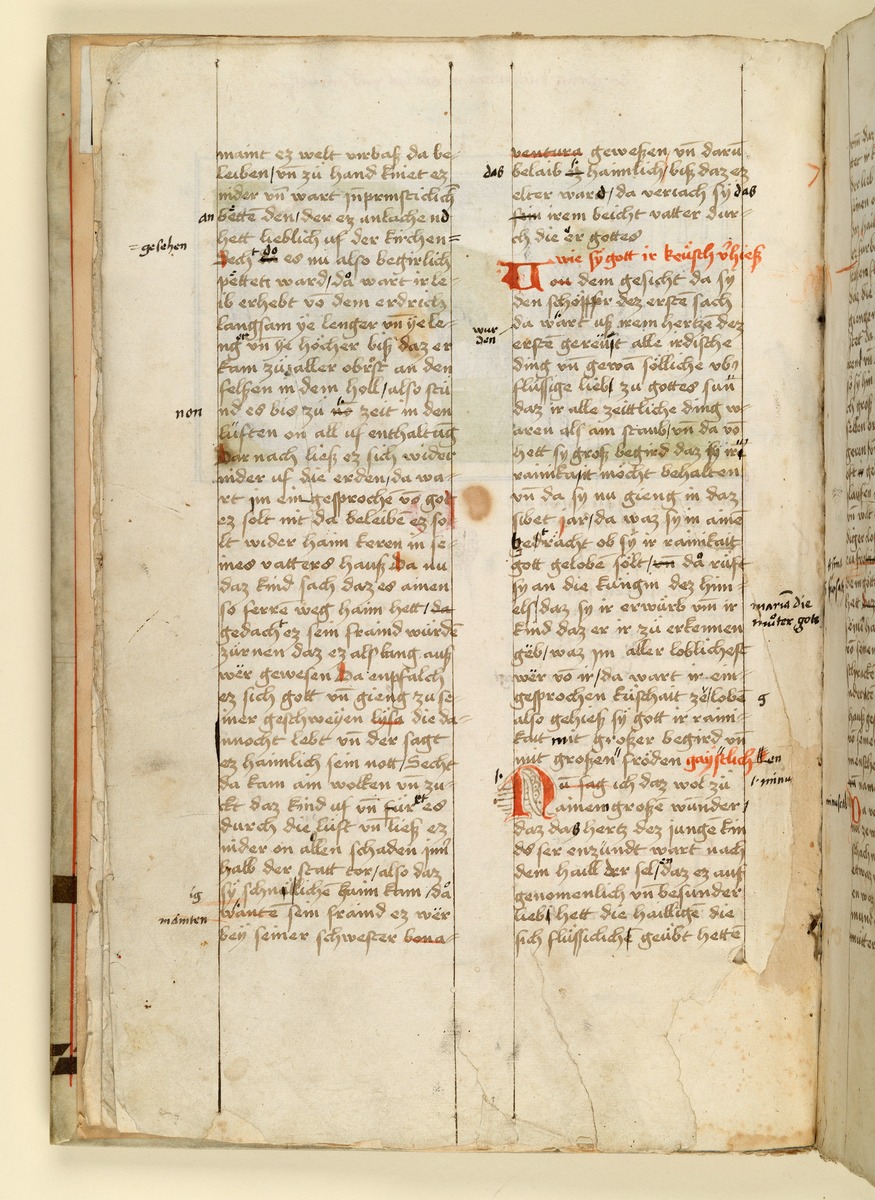 maint ez welt virbaß da be-
leiben/vn̄ zů hand kniet ez
nider vn̄ wart
an bette den/der ez anlachend
hett lieblich uf der kirchen=
=gesehen
Secht do es nu also begirlich
pëttett ward/då wart ir le-
ib erhebt vō dem erdrich
langsam ye lenger vn̄ ye le-
nger vn̄ ye höcher biß daz er
kam zů aller obrost an den
felßen in dem holl/also stů
non
nd es bis zů zeit in den
lüften on all uf enthaltūg
Dar nach ließ ez sich wider
nider uf die erden/da wa-
rt im ein gesprochē vō got
ez solt nit da beleibē ez so
lt wider haim keren in se-
ines vatters hauß Da nu
daz kind sach daz es ainen
so ferre weg haim hett/da
gedacht ez sein fraind würdē
zürnen daz ez alslang auß
wër gewesen Da enpfalch
ez sich gott vn̄ gieng zu se-
iner geschweyen lysa die da-
nnocht lebt vn̄ der sagt
ez haimlich sein nott/Secht
da kam ain wolken vn̄ zu-
ckt daz kind uf vn̄ fürt es
durch die luft vn̄ ließ ez
nider on allen schaden inn
halb der statt tor/also daz
ig
sy schnelliclichē haim kam/då
mainten
wäntē sein fraind ez wër
bey seiner schwester bona-
ventura geweßen vn̄ darū
das
belaib haimlich/biß daz ez
elter ward/da veriach sy das
irem beicht vatter dur-
ch die er gottes
wie sy gott ir keüsch v̄hieß
Von dem gesicht da sy
den schöpffer dez erste sach
da wart uß irem hertze dez
wurden
erste gereüst alle irdische
ding vn̄ gewā sölliche vb̄
flüssige lieb zu gottes sun
daz ir alle zeittliche ding w-
aren als ain staub/vn̄ da vō
hett sy groß begird daz sy ir
rainikait möcht behalten
vn̄ da sy nu gieng in daz
sibet jar/da waz sy in ainē
betracht ob sy ir rainikait
gott gelobē sölt/vn̄ då růft
sy an die küngin dez him-
maria die
můter gots
els/daz sy ir erwürb vm ir
kind daz er ir zů erkennen
gëb/waz im aller loblichest
wër vō ir/da wart ir ein-
gesprochen küschait ze lobē
g
also gehieß sy gott ir raini-
kait mit großer begird vn̄
mit großen fröden gaÿstlichen
minn
Nu sag ich daz wol zů
ainem große wunder/
daz das hertz dez junge kin
ds ser enzündt wart nach
dem haill der sel/den daz ez auß
genomenlich vn̄ besunder
lieb hett die hailligē die
sich flüssiclich geübt hettē